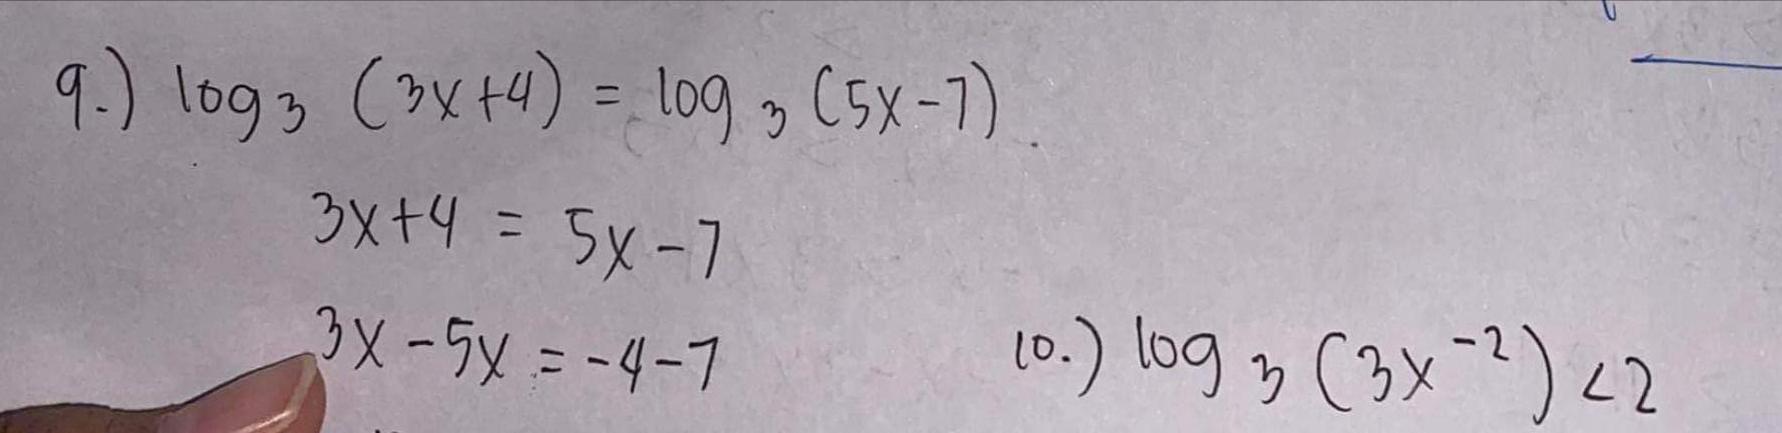 9.) log₃ (3x+4) = log₃ (5x-7)
3x+4 = 5x-7
3x-5x = -4-7
10.) log₃ (3x⁻²) <2